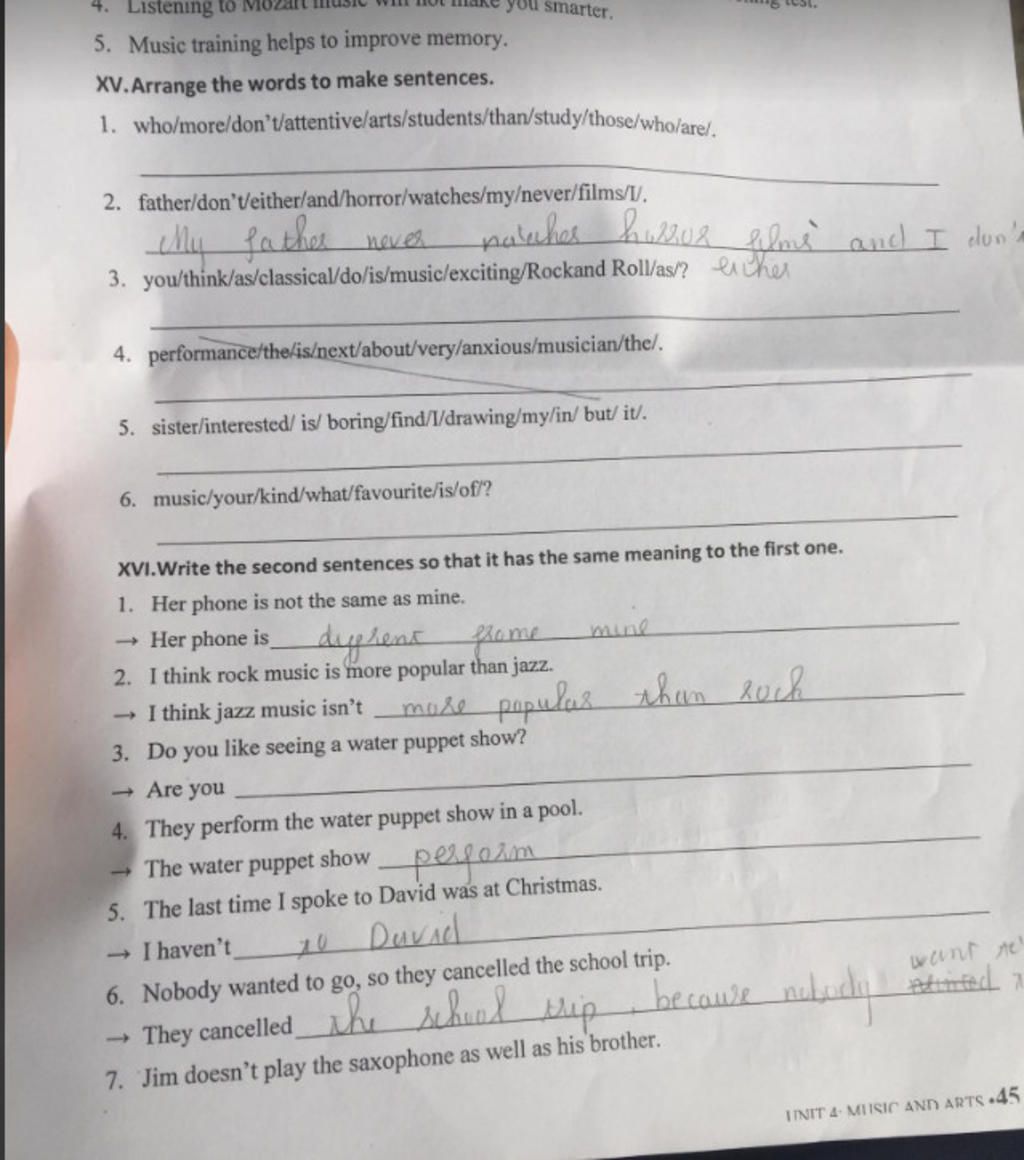 4. Listening to Mozart music will not make you smarter.
5. Music training helps to improve memory.
XV. Arrange the words to make sentences.
1. who/more/don't/attentive/arts/students/than/study/those/who/are/.
2. father/don't/either/and/horror/watches/my/never/films/I/.
My father never watches horror films and I don't
3. you/think/as/classical/do/is/music/exciting/Rockand Roll/as/? either
4. performance/the/is/next/about/very/anxious/musician/the/.
5. sister/interested/ is/ boring/find/I/drawing/my/in/ but/ it/.
6. music/your/kind/what/favourite/is/of/?
XVI. Write the second sentences so that it has the same meaning to the first one.
1. Her phone is not the same as mine.
→ Her phone is different frome mine
2. I think rock music is more popular than jazz.
→ I think jazz music isn't more popular than rock
3. Do you like seeing a water puppet show?
→ Are you
4. They perform the water puppet show in a pool.
→ The water puppet show perform
5. The last time I spoke to David was at Christmas.
→ I haven't to David
6. Nobody wanted to go, so they cancelled the school trip.
want
→ They cancelled the school trip, because nobody
7. Jim doesn't play the saxophone as well as his brother.
UNIT 4: MUSIC AND ARTS •45